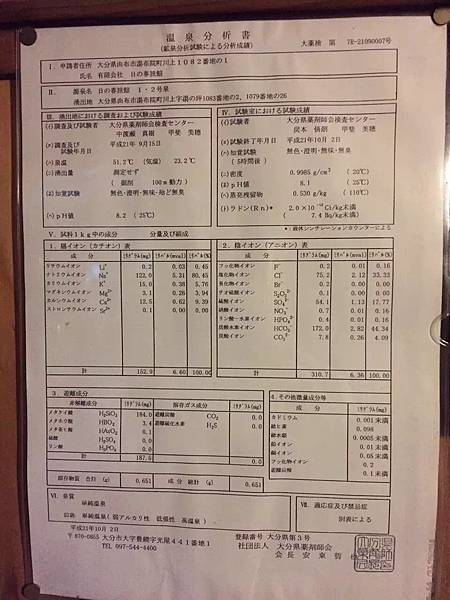 温泉分析書
(鉱泉分析試験による分析成績) 大薬検 第 7R-21090007号
I. 申請者住所 大分県由布市湯布院町川上1082番地の1
氏名 有限会社 日の春旅館
II. 源泉名 日の春旅館 1・2号泉
湧出地 大分県由布市湯布院町川上字湯の坪1083番地の2, 1079番地の26
III. 湧出地における調査及び試験成績
(イ)調査及び試験者 大分県薬剤師会検査センター
甲斐 美穂
(ロ)調査及び試験年月日 平成21年 9月15日
(ハ)泉温 51.2℃ (気温) 23.2℃
(ニ)湧出量 測定せず
(掘削 100m動力)
(ホ)知覚試験 無色・澄明・無味・殆ど無臭
(ヘ)pH値 8.2 (25℃)
IV. 試験室における試験成績
(イ)試験者 大分県薬剤師会検査センター
甲斐 美穂
(ロ)試験終了年月日 平成21年10月 2日
(ハ)知覚試験 無色・澄明・無味・無臭
(5時間後)
(ニ)密度 0.9985 g/cm³ (20℃)
(ホ)pH値 8.1 (25℃)
(ヘ)蒸発残留物 0.530 g/kg (110℃)
(ト)ラドン(Rn)* 2.0×10⁻¹⁰ Ci/kg未満
(7.4 Bq/kg未満)
*:液体シンチレーションカウンターによる
V. 試料1kg中の成分 分量及び組成
1. 陽イオン(カチオン)表
成分 ミリグラム(mg) ミリバル(mval) ミリバル%(mval%)
リチウムイオン Li⁺ 0.2 0.03 0.45
ナトリウムイオン Na⁺ 122.0 5.31 80.45
カリウムイオン K⁺ 15.0 0.38 5.76
マグネシウムイオン Mg²⁺ 3.1 0.26 3.94
カルシウムイオン Ca²⁺ 12.5 0.62 9.39
ストロンチウムイオン Sr²⁺ 0.1 0.00 0.00
計 152.9 6.60 100.00
2. 陰イオン(アニオン)表
成分 ミリグラム(mg) ミリバル(mval) ミリバル%(mval%)
フッ化物イオン F⁻ 0.2 0.01 0.16
塩化物イオン Cl⁻ 75.2 2.12 33.33
臭化物イオン Br⁻ 0.2 0.00 0.00
チオ硫酸イオン S₂O₃²⁻ 0.1 0.00 0.00
硫酸イオン SO₄²⁻ 54.1 1.13 17.77
硝酸イオン NO₃⁻ 0.7 0.01 0.16
リン酸一水素イオン HPO₄²⁻ 0.4 0.01 0.16
炭酸水素イオン HCO₃⁻ 172.0 2.82 44.34
炭酸イオン CO₃²⁻ 7.8 0.26 4.09
計 310.7 6.36 100.00
3. 遊離成分
非解離成分 ミリグラム(mg)
メタケイ酸 H₂SiO₃ 184.0
メタホウ酸 HBO₂ 3.4
メタ亜ヒ酸 HAsO₂ 0.1
硫酸 H₂SO₄ 0.0
リン酸 H₃PO₄ 0.0
計 187.5
溶存ガス成分 ミリグラム(mg)
遊離炭酸 CO₂ 0.0
遊離硫化水素 H₂S 0.0
計 0.0
溶存物質 合計 (g) 0.651
成分 総計 (g) 0.651
4. その他微量成分等
成分 ミリグラム(mg)
カドミウム 0.001未満
総ヒ素 0.098
総水銀 0.0005未満
鉛イオン 0.01未満
銅イオン 0.05未満
フッ化物イオン 0.2
遊離炭酸 0.1未満
VI. 泉質
単純温泉
泉質 単純温泉(弱アルカリ性 低張性 高温泉)
VII. 適応症及び禁忌症
別表による
平成21年10月 2日
〒870-0855 大分市大字豊饒字光尾441番地1
TEL 097-544-4400
登録番号 大分県第3号
社団法人 大分県薬剤師会
会長 安東 哲